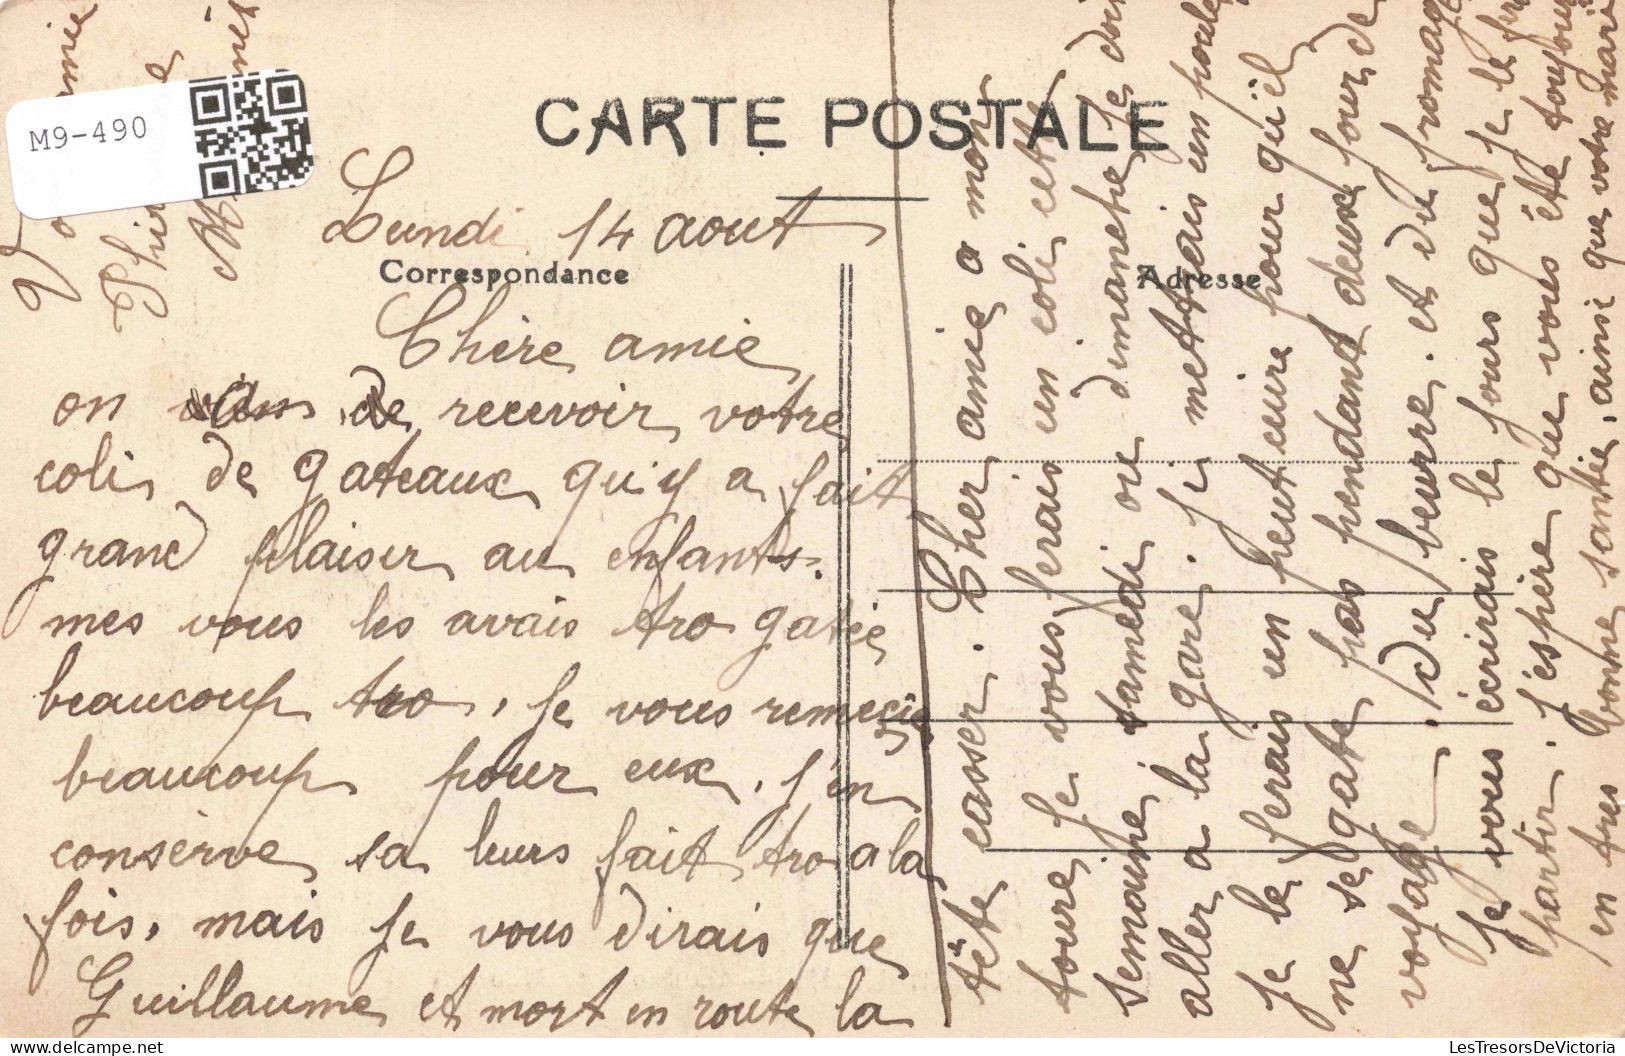 M9-490
CARTE POSTALE
Correspondance
Adresse
Lundi 14 aout
Chère amie
on de recevoir votre
coli de gateaux qui y a fait
grand plaisir au enfants.
mes vous les avais tro gatée
beaucoup tro, je vous remecie
beaucoup pour eux. j'en
consèrve sa leurs fait tro a la
fois, mais je vous dirais que
Guillaume et mort en route la
tête casser. Cher amie a mon
toure je vous ferais un coli cette
semaine samedi ou dimanche je dois
aller a la gare. j'i mettrais un poulet
je le ferais un peut cuire pour qu'il
ne se gate pas pendant deux jour de
voyage. du beurre. et du fromage
je vous écrirais le jours que je le
partir. j'espère que vous été toujours
en tres bonne santée, ainsi que votre mari
V amie
LesTresorsDeVictoria.com